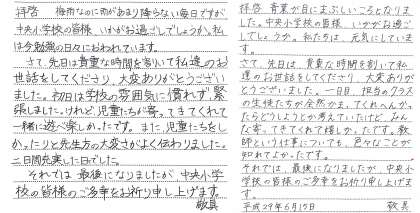 拝啓　梅雨なのに雨があまり降らない毎日ですが
中央小学校の皆様、いかがお過ごしでしょうか。私
は今勉強の日々におわれています。
さて、先日は貴重な時間を割いて私達のお
世話をしてくださり、大変ありがとうござい
ました。初日は学校の雰囲気に慣れず、緊
張しました。けれど、児童たちが寄ってきてくれて
一緒に遊べ楽しかったです。また、児童たちをし
かったりと先生方の大変さがよく伝わりました。
二日間充実した日でした。
それでは最後になりましたが中央小学
校の皆様のご多幸をお祈り申し上げます。
敬具
拝啓　青葉が目にまぶしいころとなりまし
た。中央小学校の皆様、いかがお過ごし
でしょうか。私たちは、元気にしていま
す。
さて、先日は、貴重な時間を割いて私
達のお世話をしてくださり、大変ありが
とうございました。一日目、担当のクラス
の生徒たちが全然かまってくれへんか
ったらどうしようとか考えていたけど、みんな
寄ってきてくれて嬉しかったです。教
師という仕事についても、色々なことが
知れてよかったです。
それでは、最後になりましたが、中央小
学校の皆様のご多幸をお祈り申し上げま
す。
平成27年6月17日　敬具